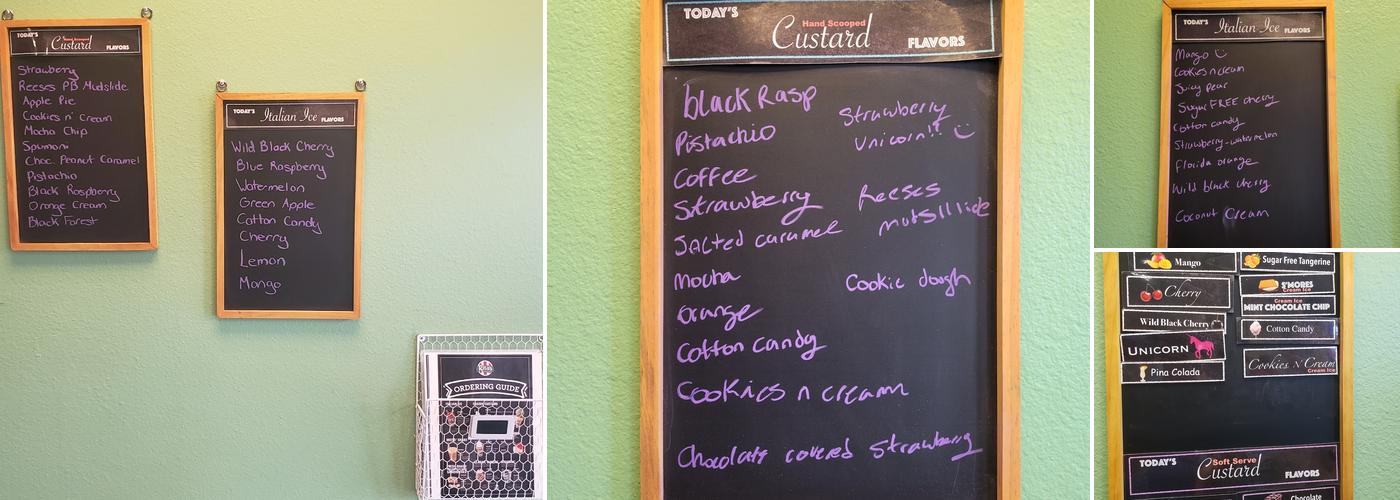 TODAY'S
Hand Scooped
Custard
FLAVORS
Strawberry
Reeses PB Mudslide
Apple Pie
Cookies n' Cream
Mocha Chip
Spumoni
Choc. Peanut Caramel
Pistachio
Black Raspberry
Orange Cream
Black Forest
TODAY'S Italian Ice FLAVORS
Wild Black Cherry
Blue Raspberry
Watermelon
Green Apple
Cotton Candy
Cherry
Lemon
Mango
ORDERING GUIDE
TODAY'S
Hand Scooped
Custard
FLAVORS
black Rasp
Pistachio
Coffee
Strawberry
SAlted caramel
mocha
orange
Cotton candy
Cookies n cream
Chocolate covered Strawberry
Strawberry
Unicorn!!
Reeses
Cookie dough
TODAY'S Italian Ice FLAVORS
Mango
Cookies n cream
Juicy pear
Sugar FREE cherry
Cotton candy
Strawberry-watermelon
Florida orange
Wild black cherry
Coconut Cream
Mango
Cherry
Wild Black Cherry
UNICORN
Pina Colada
Sugar Free Tangerine
S'MORES
Cream Ice
Cream Ice
MINT CHOCOLATE CHIP
Cotton Candy
Cookies N Cream
Cream Ice
TODAY'S
Soft Serve
Custard
FLAVORS
Chocolate